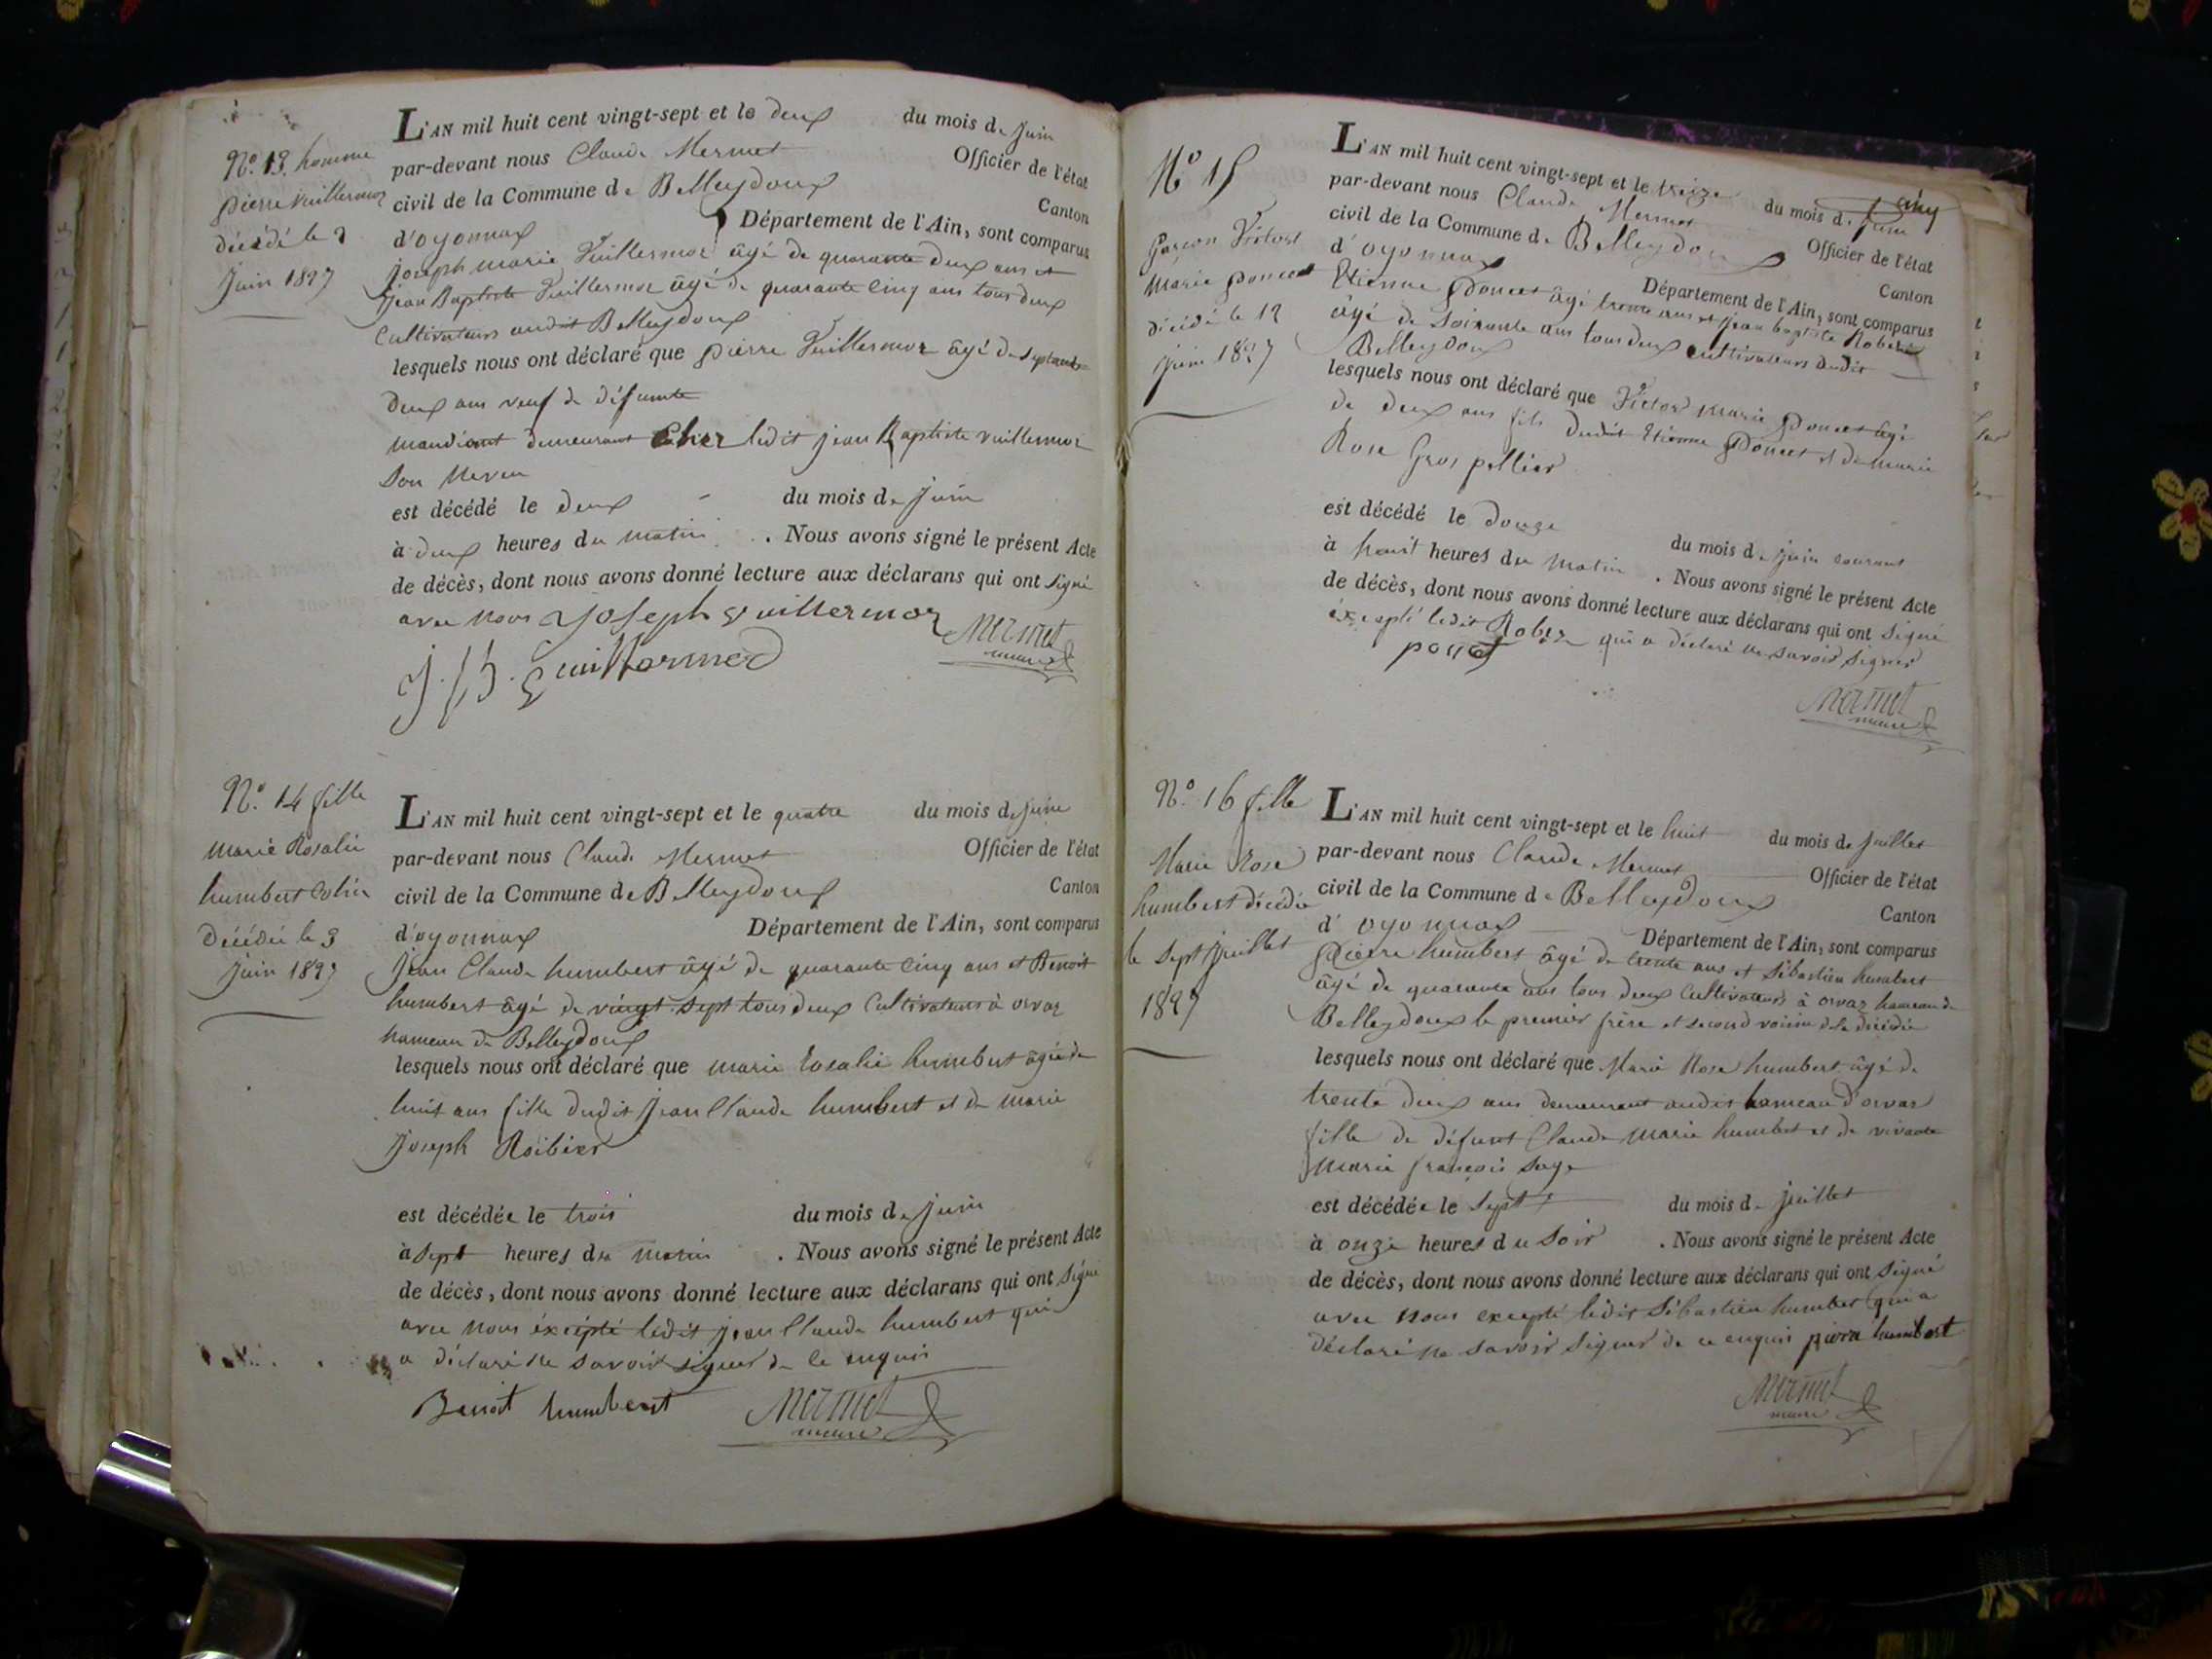 N.º 13. homme
pierre Vuillermoz
décédé le 2
juin 1827
L'AN mil huit cent vingt-sept et le deux du mois de juin
par-devant nous Claude Mermet Officier de l'état
civil de la Commune de Belleydoux Canton
d'oyonnax Département de l'Ain, sont comparus
joseph marie Vuillermoz âgé de quarante deux ans et
jean Baptiste Vuillermoz âgé de quarante cinq ans tous deux
Cultivateurs audit Belleydoux
lesquels nous ont déclaré que pierre Vuillermoz âgé de septante
deux ans veuf de défunte
mandiant demeurant Chez ledit jean Baptiste vuillermoz
son neveu
est décédé le deux du mois de juin
à deux heures du matin . Nous avons signé le présent Acte
de décès, dont nous avons donné lecture aux déclarans qui ont signé
avec nous Joseph Vuillermoz Mermet
maire
j. B. Vuillermoz
N.º 14 fille
marie Rosalie
humbert Colin
Décédée le 3
juin 1827
L'AN mil huit cent vingt-sept et le quatre du mois de juin
par-devant nous Claude Mermet Officier de l'état
civil de la Commune de Belleydoux Canton
d'oyonnax Département de l'Ain, sont comparus
jean Claude humbert âgé de quarante cinq ans et Benoit
humbert âgé de vingt sept tous deux Cultivateurs à orvaz
hameau de Belleydoux
lesquels nous ont déclaré que marie rosalie humbert âgée de
huit ans fille dudit jean Claude humbert et de marie
joseph Roibier
est décédée le trois du mois de juin
à sept heures du matin . Nous avons signé le présent Acte
de décès, dont nous avons donné lecture aux déclarans qui ont signé
avec nous éxcépté ledit jean Claude humbert qui
a déclaré ne savoir signer de ce enquis
Benoit humbert Mermet
maire
N.º 15
garcon Victor
marie poncet
décédé le 12
juin 1827
L'AN mil huit cent vingt-sept et le treize du mois de juin
par-devant nous Claude Mermet Officier de l'état
civil de la Commune de Belleydoux Canton
d'oyonnax Département de l'Ain, sont comparus
Etienne poncet âgé trente ans et jean baptiste
âgé de soixante ans tous deux cultivateurs audit
Belleydoux
lesquels nous ont déclaré que Victor marie poncet âgé
de deux ans fils dudit Etienne poncet et de marie
Rose Gros pellier
est décédé le douze du mois de juin courant
à heures du matin . Nous avons signé le présent Acte
de décès, dont nous avons donné lecture aux déclarans qui ont signé
éxcepté ledit qui a déclaré ne savoir signer
Mermet
maire
N.º 16 fille
Marie Rose
humbert décédée
le sept juillet
1827
L'AN mil huit cent vingt-sept et le huit du mois de juillet
par-devant nous Claude Mermet Officier de l'état
civil de la Commune de Belleydoux Canton
d'oyonnax Département de l'Ain, sont comparus
pierre humbert âgé de trente ans et Sébastien humbert
âgé de quarante ans tous deux Cultivateurs à orvaz hameau de
Belleydoux le premier frère et second voisin de la décédée
lesquels nous ont déclaré que Marie Rose humbert âgé de
trente deux ans demeurant audit hameau d'orvaz
fille de défunt Claude marie humbert et de vivante
marie françois sage
est décédée le sept du mois de juillet
à onze heures du soir . Nous avons signé le présent Acte
de décès, dont nous avons donné lecture aux déclarans qui ont signé
avec nous excepté ledit Sébastien humbert qui a
déclaré ne savoir signer de ce enquis pierre humbert
Mermet
maire